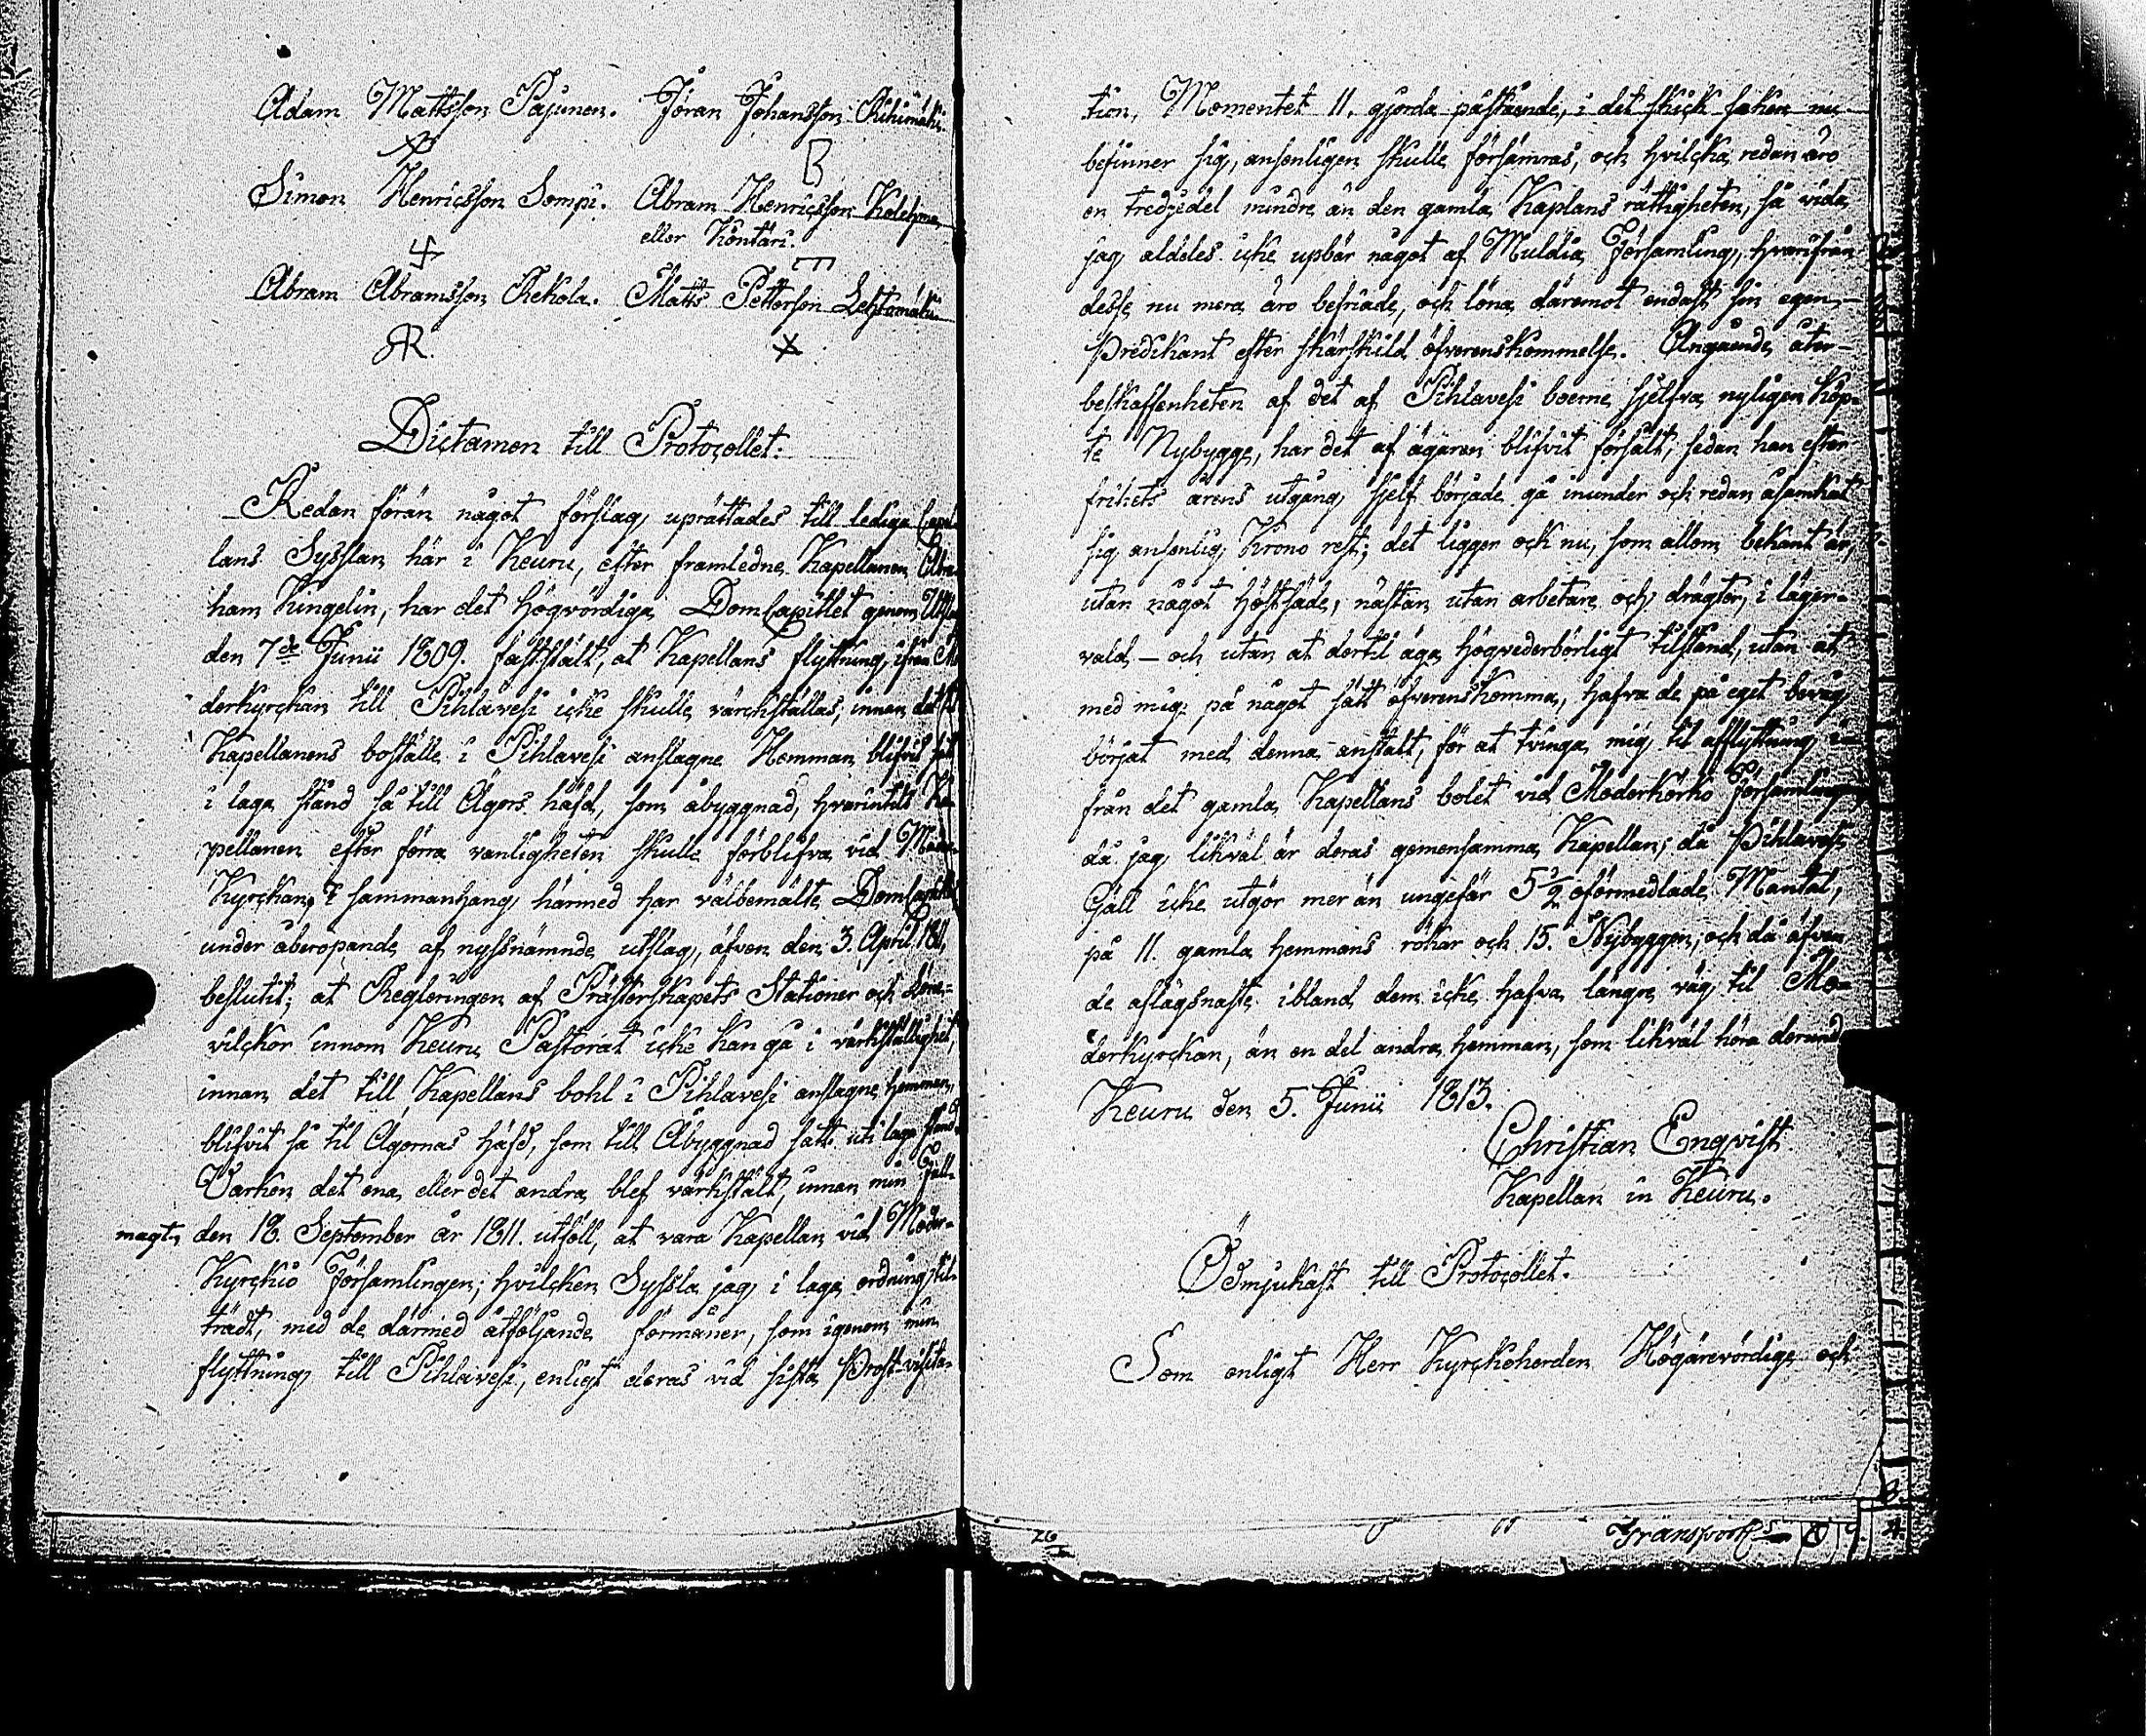 Adam Mattsson Pajunen. Jöran Johansson Riihimäki
Simon Henricsson Sompi. Abram Henricsson Kolehma
eller Köntäri.
Abram Abramsson Rekola. Matts Pettersson Lehtomäki
Dictamen till Protocollet.
Redan förän något förslag uprättades till lediga Capel-
lans Sysslan här i Keuru, efter framledne Kapellanen Abra-
ham Kingelin, har det Högvördiga DomCapitlet genom Utslag
den 7de Junii 1809. faststält, at Kapellans flyttning, ifrån Mo
derkyrckan till Pihlavesi icke skulle värckställas, innan det til
Kapellanens boställe i Pihlavesi anslagne Hemman blifvit satt
i laga stånd så till Ägors häfd, som åbyggnad, hvarintils Ka-
pellanen efter förra vanligheten skulle förblifva vid Moder-
Kyrckan, I sammanhang härmed har välbemälte DomCapitlet
under åberopande af nyssnämnde utslag, äfven den 3. April 1811,
beslutit; at Regleringen af Prästerskapets Stationer och Löne-
vilckor innom Keuru Pastorat icke kan gå i värkställighet,
innan det till Kapellans bohl i Pihlavesi anslagne hemman,
blifvit så til Ägornas häfd, som till Åbyggnad satt uti laga stånd.
Varken det ena eller det andra blef värkstält, innan min Full-
magt, den 18. September år 1811. utföll, at vara Kapellan vid Moder-
Kyrckio Församlingen; hvilcken Syssla jag i laga ordning til-
trädt, med de därmed åtföljande förmåner, som igenom min
flyttning till Pihlavesi, enligt deras vid sista Prost-visita-
tion, Momentet 11. gjorda påstående, i det skick saken nu
befinner sig, ansenligen skulle försämras, och hvilcka redan äro
en tredjedel mindre än den gamla Kaplans rättigheten, så vida
jag aldeles icke upbär något af Muldia Församling, hvarifrån
desse nu mera äro befriade, och löna däremot endast sin egen
Predikant efter särskild öfverenskommelse. Angående åter
beskaffenheten af det af Pihlavesi boerne sjelfva nyligen köp-
te Nybygge, har det af ägaren blifvit försålt, sedan han efter
frihets årens utgång sjelf började gå inunder och redan åsamkat
sig ansenlig Krono rest; det ligger ock nu, som allom bekant är,
utan något höstsäde, nästan utan arbetare och drägter, i läger-
vald — och utan at dertil äga högvederbörligt tilstånd, utan at
med mig på något sätt öfverenskomma, hafva de på eget bevåg
börjat med denna anstalt, för at tvinga mig til afflyttning i-
från det gamla Kapellans bolet vid Moderkörko Församlingen
då jag likväl är deras gemensamma Kapellan; då Pihlavesi
Gäll icke utgör mer än ungefär 5 1/2 oförmedlade Mantal,
på 11. gamla hemmans rökar och 15. Nybyggen, och då äfven
de aflägsnaste ibland dem icke hafva längre väg til Mo-
derkyrckan, än en del andra hemman, som likväl höra derund
Keuru den 5. Junii 1813.
Christian Enqvist
Kapellan in Keuru.
Ödmjukast till Protocollet.
Som enligt Herr Kyrckoherden Högärevördige och
26
Transport